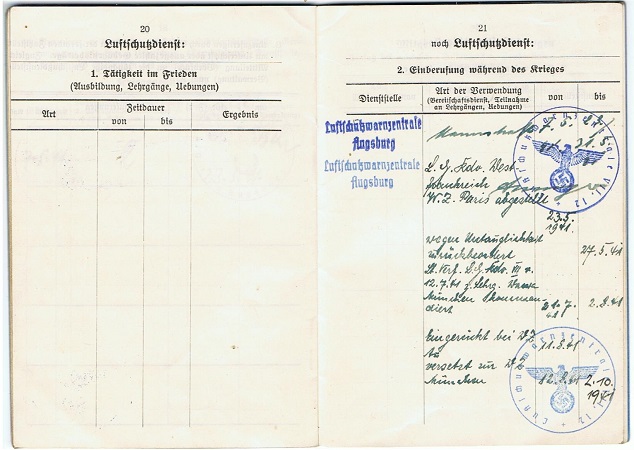 20
Luftschutzdienst:
1. Tätigkeit im Frieden
(Ausbildung, Lehrgänge, Uebungen)
Art
Zeitdauer
von
bis
Ergebnis
21
noch Luftschutzdienst:
2. Einberufung während des Krieges
Dienststelle
Art der Verwendung
(Bereitschaftsdienst, Teilnahme
an Lehrgängen, Uebungen)
von
bis
Luftschutzwarnzentrale
Augsburg
Luftschutzwarnzentrale
Augsburg
L.G. Kdo. West
Frankreich
W.Z. Paris abgestellt
23.5.
1941.
wegen Untauglichkeit
zurückbeordert
27.5.41
lt. Verf. L.G. Kdo. III v.
12.7.41 z. Lehrg.
München kommandiert
21.7.
41
2.8.41
Eingerückt bei
11.8.41
versetzt zur
München
12.8.41
2.10.
1941